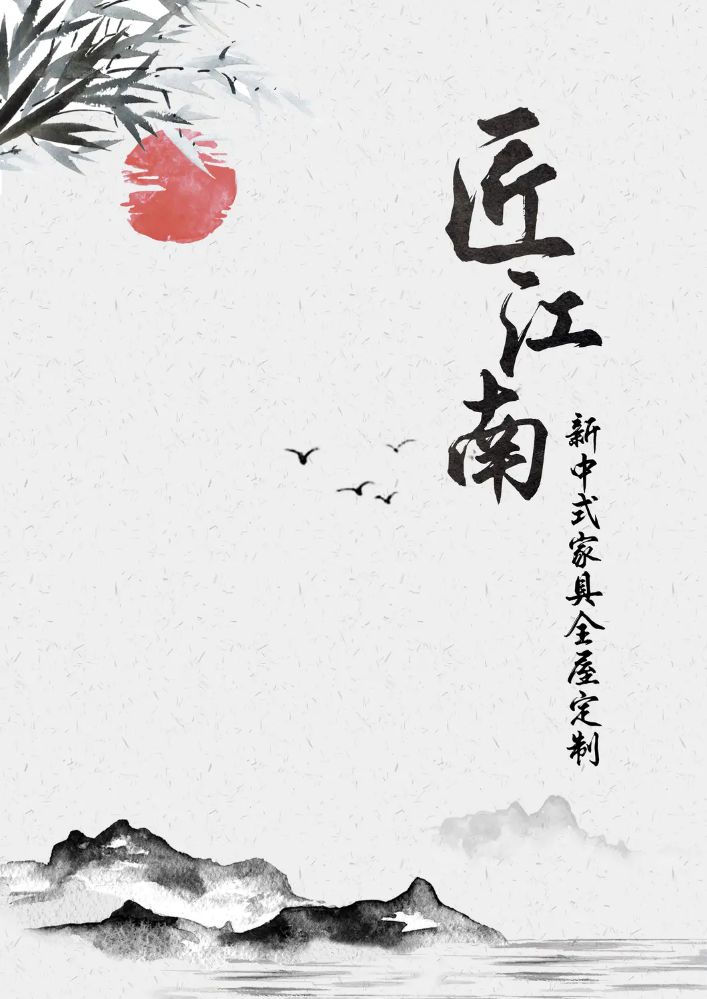 匠江南
新中式家具全屋定制